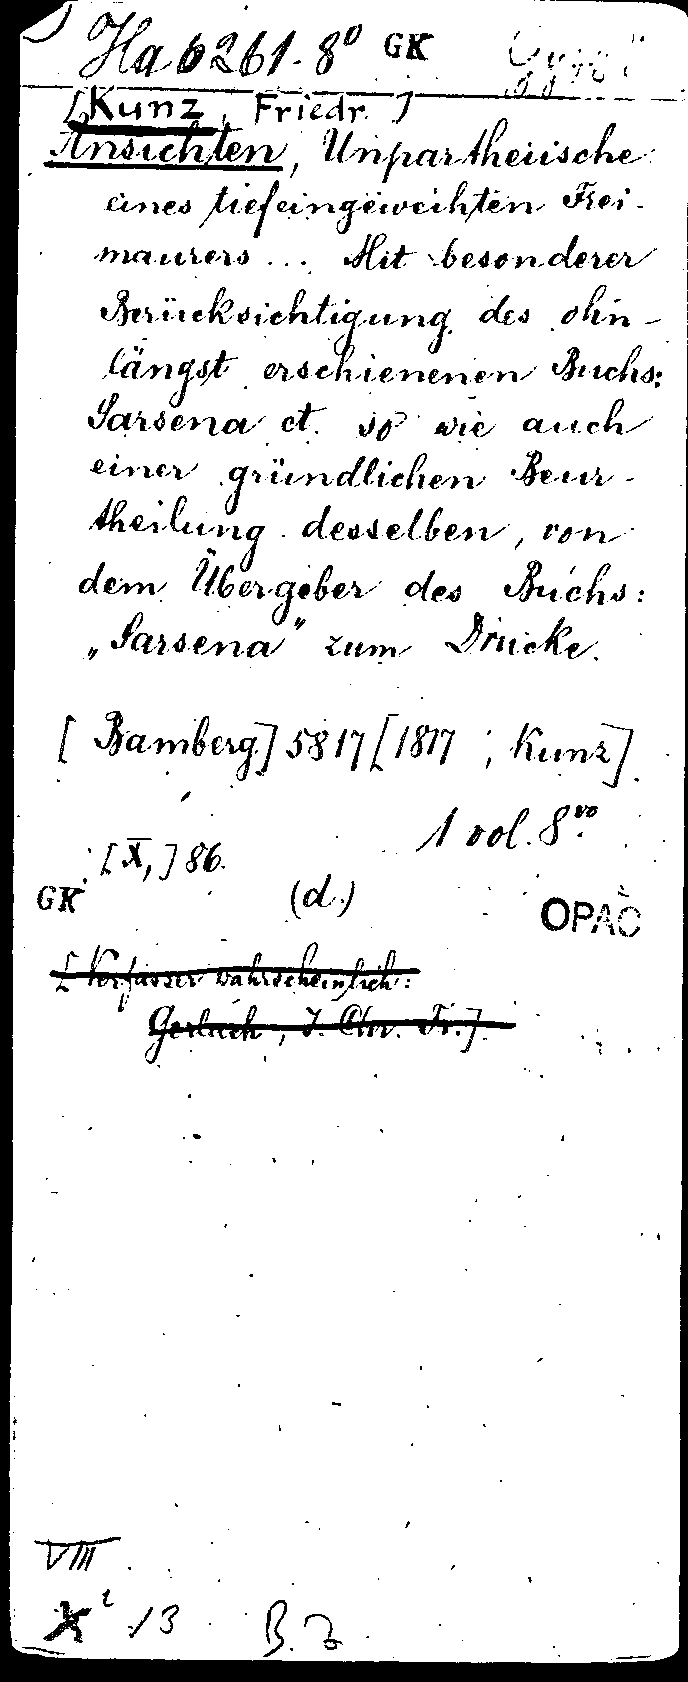 Ha 6261-8° GK
[Kunz, Friedr.]
Ansichten, Unpartheiische
eines tiefeingeweihten Frei-
maurers... Mit besonderer
Berücksichtigung des ohn-
längst erschienenen Buchs:
Sarsena ct. so wie auch
einer gründlichen Beur-
theilung desselben, von
dem Übergeber des Buchs:
„Sarsena" zum Drucke.
[Bamberg] 5817 [1817; Kunz]
1 vol. 8vo.
[X,] 86.
GK (d.) OPAC
[Verfasser wahrscheinlich:
Gerlach, J. Chr. Fr.]
VIII
13 B.